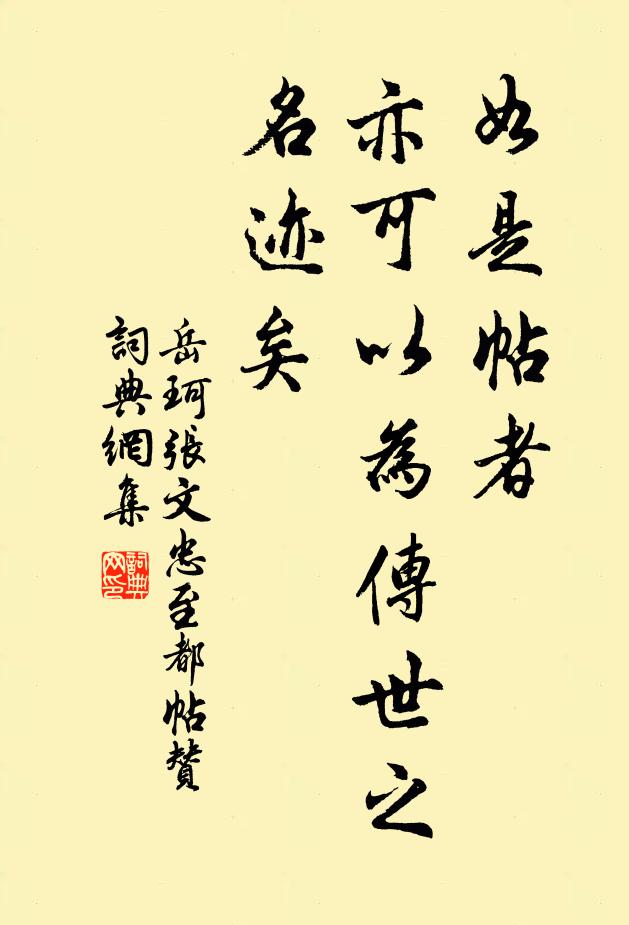 如是帖者
亦可以為傳世之
名迹矣
岳珂張文忠至都帖贊
詞典網集
詞典
网印